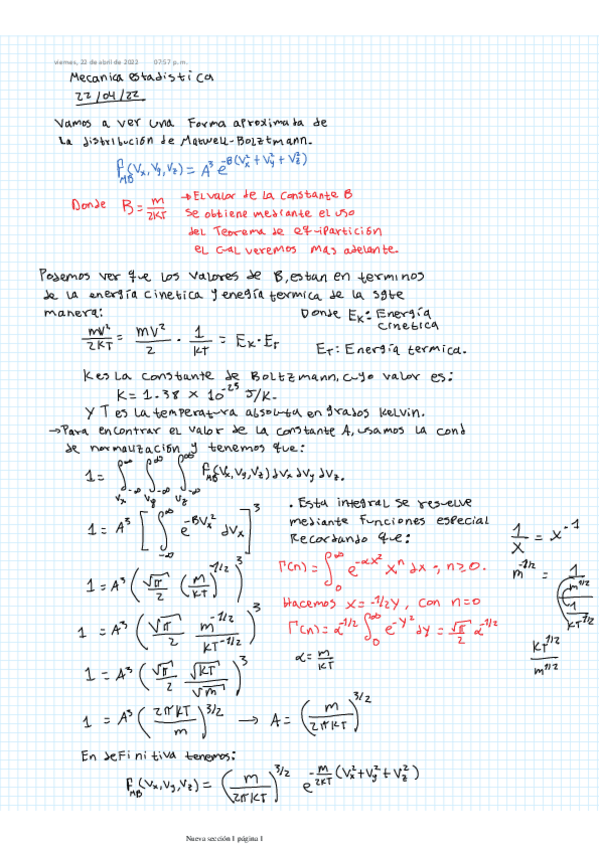 viernes, 22 de abril de 2022 07:57 p. m.
Mecanica estadistica
22/04/22
Vamos a ver una Forma aproximada de
la distribución de Maxwell-Bolztmann.
f_MB(Vx,Vy,Vz) = A³ e^-B(Vx²+Vy²+Vz²)
Donde B = m/2KT → El valor de la constante B
se obtiene mediante el uso
del Teorema de equipartición
el cual veremos mas adelante.
Podemos ver que los valores de B, estan en terminos
de la energía cinetica y enegía termica de la sgte
manera:
Donde Ek: Energía
cinetica
mv²/2KT = mv²/2 · 1/KT = Ek·ET
ET: Energía termica.
K es la constante de Boltzmann, cuyo valor es:
K = 1.38 × 10^-23 J/K.
y T es la temperatura absoluta en grados kelvin.
→ Para encontrar el valor de la constante A, usamos la cond
de normalización y tenemos que:
1 = ∫_-∞^∞ ∫_-∞^∞ ∫_-∞^∞ f_MB(Vx,Vy,Vz) dVx dVy dVz.
Vx Vy Vz
1 = A³ [∫_-∞^∞ e^-BVx² dVx]³
. Esta integral se resuelve
mediante funciones especial
Recordando que:
1/x = x^-1
1 = A³ (√π/2 (m/KT)^-1/2)³
Γ(n) = ∫_0^∞ e^-αx² x^n dx ; n≥0.
m^-1/2 = (1/m^1/2)/(1/KT^1/2)
Hacemos x = -1/2y, con n=0
1 = A³ (√π/2 m^-1/2/KT^-1/2)³
Γ(n) = α^-1/2 ∫_0^∞ e^-y² dy = √π/2 α^-1/2
KT^1/2/m^1/2
α = m/KT
1 = A³ (√π/2 √KT/√m)³
1 = A³ (2πKT/m)^3/2 → A = (m/2πKT)^3/2
En definitiva tenemos:
f_MB(Vx,Vy,Vz) = (m/2πKT)^3/2 e^-m/2KT (Vx²+Vy²+Vz²)
Nueva sección 1 página 1